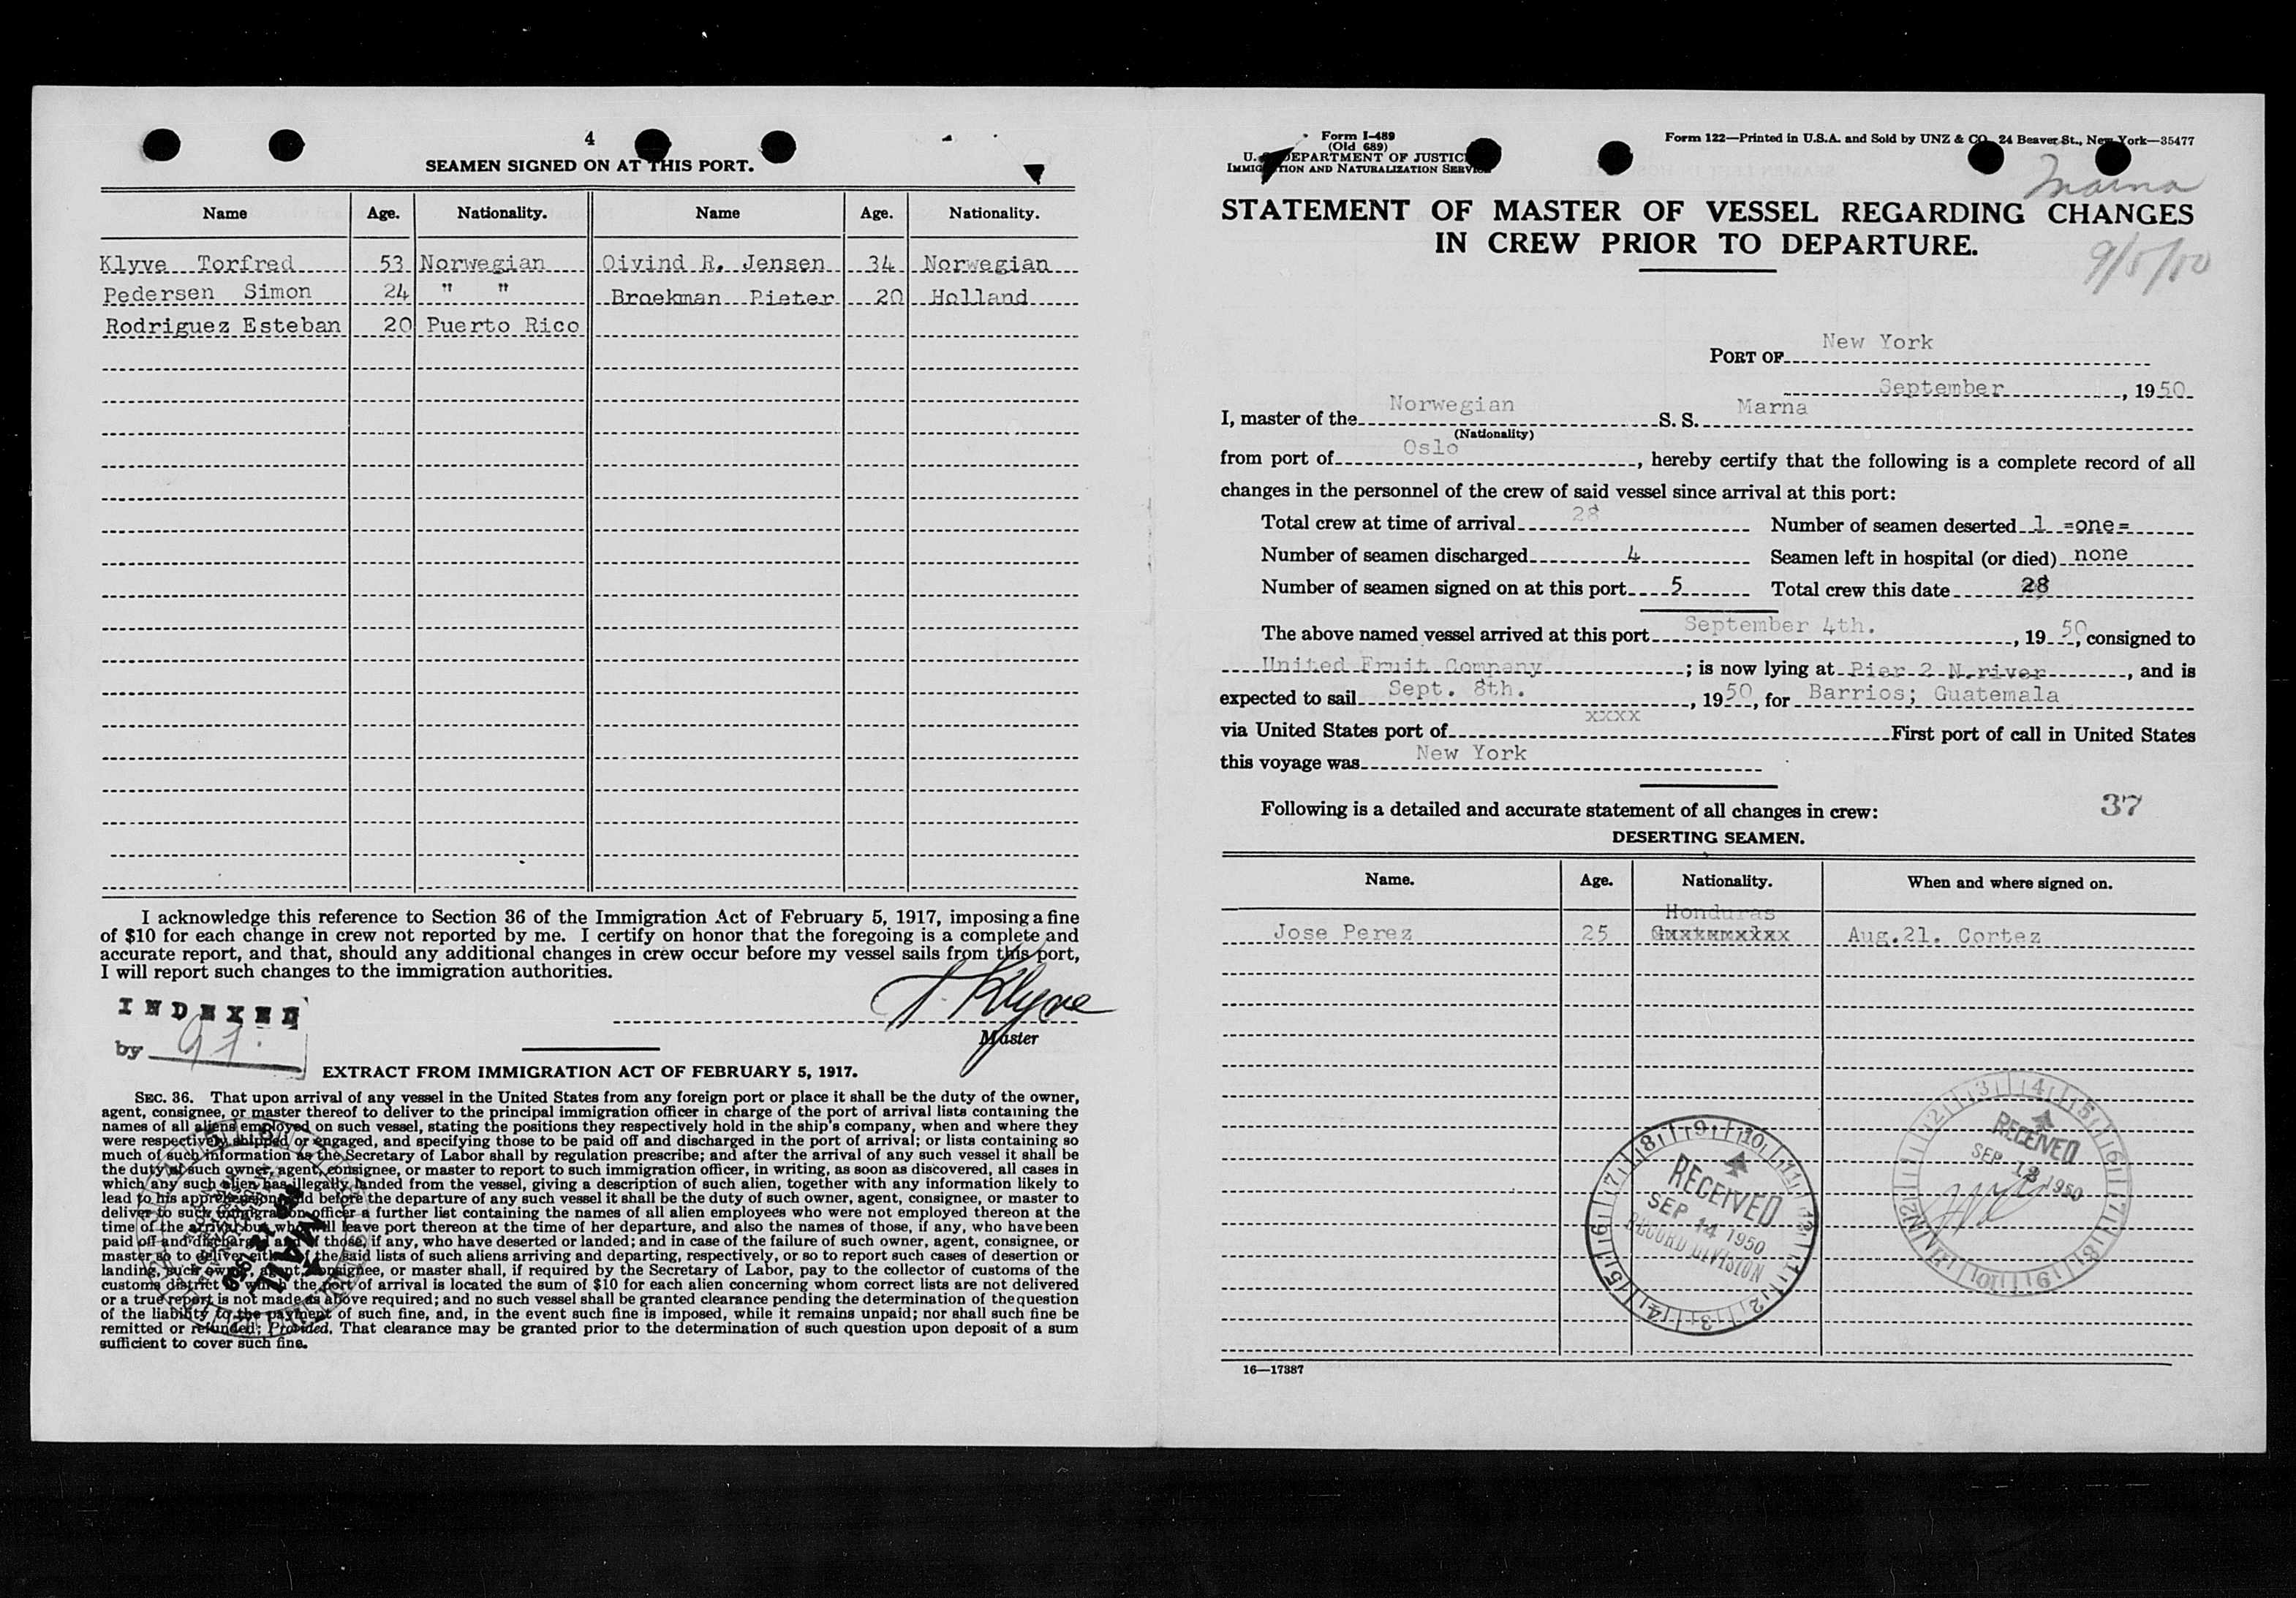 4
SEAMEN SIGNED ON AT THIS PORT.
Name Age. Nationality. Name Age. Nationality.
Klyve Torfred 53 Norwegian Oivind R. Jensen 34 Norwegian
Pedersen Simon 24 " " Broekman Pieter 20 Holland
Rodriguez Esteban 20 Puerto Rico
I acknowledge this reference to Section 36 of the Immigration Act of February 5, 1917, imposing a fine
of $10 for each change in crew not reported by me. I certify on honor that the foregoing is a complete and
accurate report, and that, should any additional changes in crew occur before my vessel sails from this port,
I will report such changes to the immigration authorities.
INDEXED
by
T. Klyve
Master
EXTRACT FROM IMMIGRATION ACT OF FEBRUARY 5, 1917.
SEC. 36. That upon arrival of any vessel in the United States from any foreign port or place it shall be the duty of the owner,
agent, consignee, or master thereof to deliver to the principal immigration officer in charge of the port of arrival lists containing the
names of all aliens employed on such vessel, stating the positions they respectively hold in the ship's company, when and where they
were respectively shipped or engaged, and specifying those to be paid off and discharged in the port of arrival; or lists containing so
much of such information as the Secretary of Labor shall by regulation prescribe; and after the arrival of any such vessel it shall be
the duty of such owner, agent, consignee, or master to report to such immigration officer, in writing, as soon as discovered, all cases in
which any such alien has illegally landed from the vessel, giving a description of such alien, together with any information likely to
lead to his apprehension; and before the departure of any such vessel it shall be the duty of such owner, agent, consignee, or master to
deliver to such immigration officer a further list containing the names of all alien employees who were not employed thereon at the
time of the arrival but who will leave port thereon at the time of her departure, and also the names of those, if any, who have been
paid off and discharged, and of those, if any, who have deserted or landed; and in case of the failure of such owner, agent, consignee, or
master so to deliver either of the said lists of such aliens arriving and departing, respectively, or so to report such cases of desertion or
landing, such owner, agent, consignee, or master shall, if required by the Secretary of Labor, pay to the collector of customs of the
customs district in which the port of arrival is located the sum of $10 for each alien concerning whom correct lists are not delivered
or a true report is not made as above required; and no such vessel shall be granted clearance pending the determination of the question
of the liability to the payment of such fine, and, in the event such fine is imposed, while it remains unpaid; nor shall such fine be
remitted or refunded: Provided, That clearance may be granted prior to the determination of such question upon deposit of a sum
sufficient to cover such fine.
MAIL
Form I-489
(Old 689)
U. S. DEPARTMENT OF JUSTICE
IMMIGRATION AND NATURALIZATION SERVICE
Form 122—Printed in U.S.A. and Sold by UNZ & CO., 24 Beaver St., New York—35477
Marna
STATEMENT OF MASTER OF VESSEL REGARDING CHANGES
IN CREW PRIOR TO DEPARTURE.
PORT OF New York
September, 1950
I, master of the Norwegian S. S. Marna
(Nationality)
from port of Oslo, hereby certify that the following is a complete record of all
changes in the personnel of the crew of said vessel since arrival at this port:
Total crew at time of arrival 28 Number of seamen deserted 1 =one=
Number of seamen discharged 4 Seamen left in hospital (or died) none
Number of seamen signed on at this port 5 Total crew this date 28
The above named vessel arrived at this port September 4th., 1950, consigned to
United Fruit Company; is now lying at Pier 2 N.river, and is
expected to sail Sept. 8th., 1950, for Barrios; Guatemala
via United States port of xxxx First port of call in United States
this voyage was New York
Following is a detailed and accurate statement of all changes in crew:
37
DESERTING SEAMEN.
Name. Age. Nationality. When and where signed on.
Honduras
Jose Perez 25 Aug.21. Cortez
RECEIVED
SEP 14 1950
RECORD DIVISION
RECEIVED
SEP 13 1950
16—17387